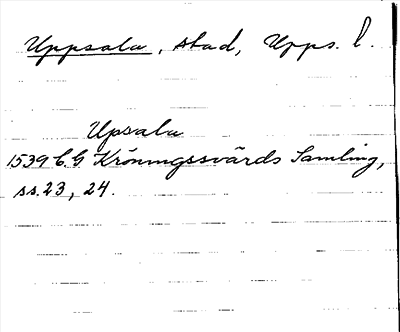 Uppsala, stad, Upps. l.
Upsala
1539 C.G. Kröningssvärds Samling,
ss. 23, 24.